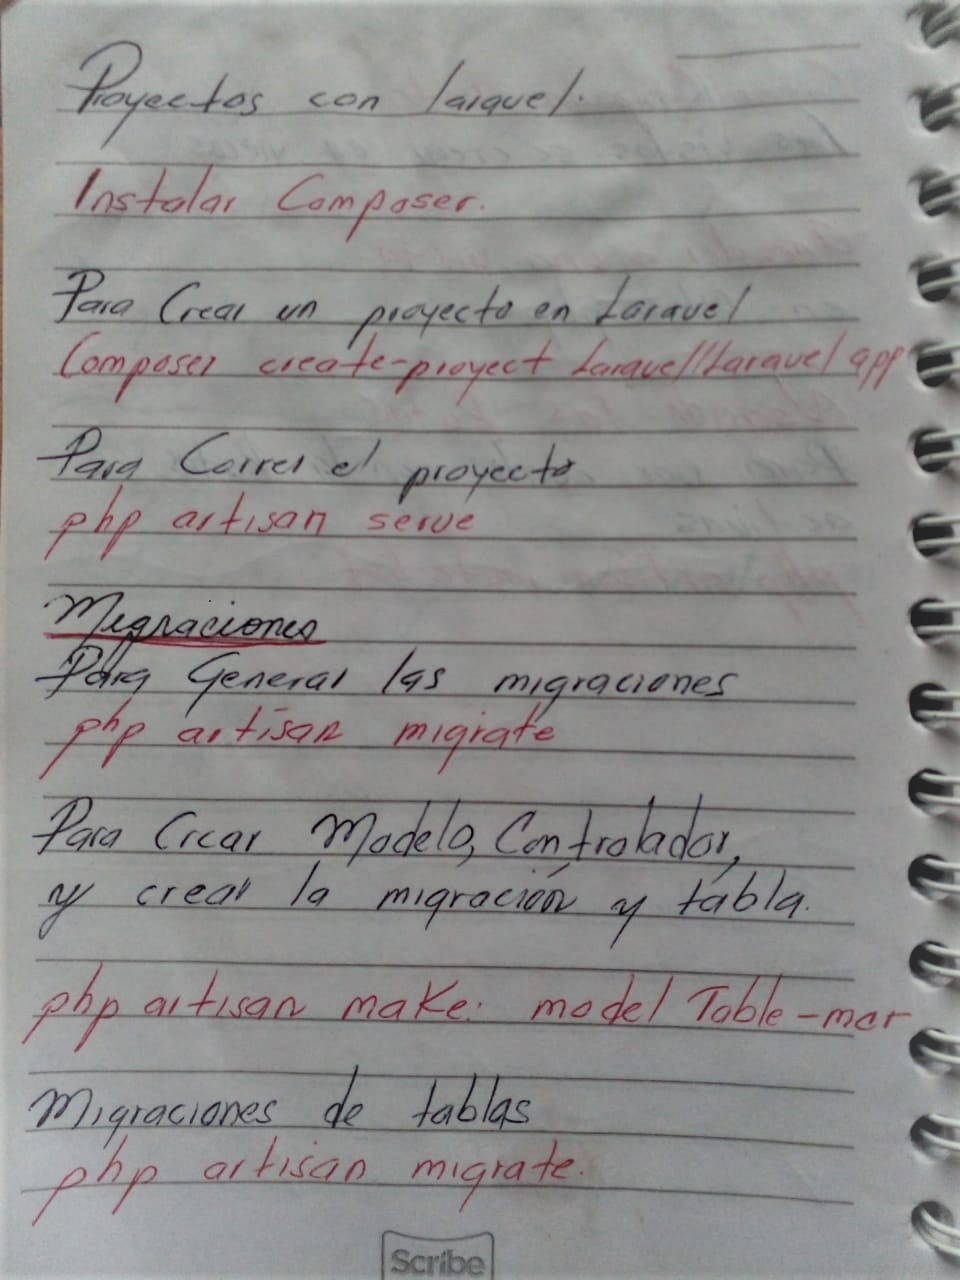 Proyectos con laravel.
Instalar Composer.
Para Crear un proyecto en Laravel
Composer create-proyect Laravel/Laravel app
Para Correr el proyecto
php artisan serve
Migraciones
Para General las migraciones
php artisan migrate
Para Crear Modelo, Controlador,
y crear la migración y tabla.
php artisan make: model Table -mcr
Migraciones de tablas
php artisan migrate.
Scribe